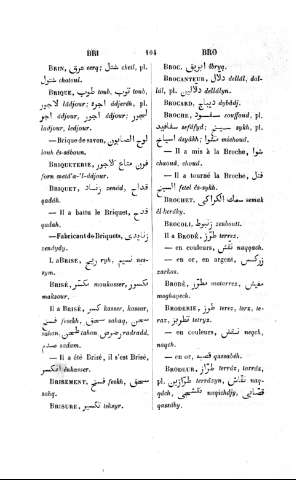 BRI
104
BRO
BRIN, عرق eerq; شتل cheil, pl.
شتول chatoul.
BRIQUE, طوب toub, توب toub,
لاجور lâdjour; اجرة âdjerah, pl.
اجور âdjour, اجور âdjour, لاجور
ledjour.
— Brique de savon, لوح الصابون
louh és-sâboun.
BRIQUETERIE, فرن متاع لاجور
forn metâ'a-'l-âdjour.
BRIQUET, زناد zenâd, قداح
qadâh.
— Il a battu le Briquet, قدح
qadah.
— Fabricant de Briquets, زنايدي
zenâydy.
BRISE, ريح ryh, نسيم nes-
sym.
BRISÉ, مكسور moukasser, مكسور
maksour.
Il a BRISÉ, كسر kasser, kassar,
فسخ fesekh, سحق sahaq, سحن
sahan, طحن tahan, رضرض radradd,
صدم sadam.
— Il a été Brisé, il s'est Brisé,
انكسر énkasser.
BRISEMENT, فسخ feskh, سحق
sahq.
BRISURE, تكسير teksyr.
BROC, ابريق ibryq.
BROCANTEUR, دلال dellâl, dal-
lâl, pl. دلالين dellâlyn.
BROCARD, ديباج dybâdj.
BROCHE, سفود seuffoud, pl.
سفافيد sefâfyd; سيخ sykh, pl.
اسياخ âsyâkh; سيخان sykhân.
— Il a mis à la Broche, شوا
chaouä, choud.
— Il a tourné la Broche, فتل
السيخ fetel és-sykh.
BROCHET, سمك الكراكي semak
él-kerâky.
BROCOLI, زنبوط zenbouti.
Il a BRODÉ, طرّز terrez.
— en couleurs, نقش naqqech.
— en or, en argent, زركش
zerkes.
BRODÉ, مطرّز motarrez, منقّش
monaqqech.
BRODERIE, طرز terz, terz, te-
raz, تطريز tetryz.
— en couleurs, نقش neqch,
naqch.
— en or, قصبة qassabêh.
BRODEUR, طرّاز terrâz, terrâz,
pl. طرّازين terrâzyn, نقّاش naq-
qâch, نقشجي naqichdjy, قصّابي
qassâby.